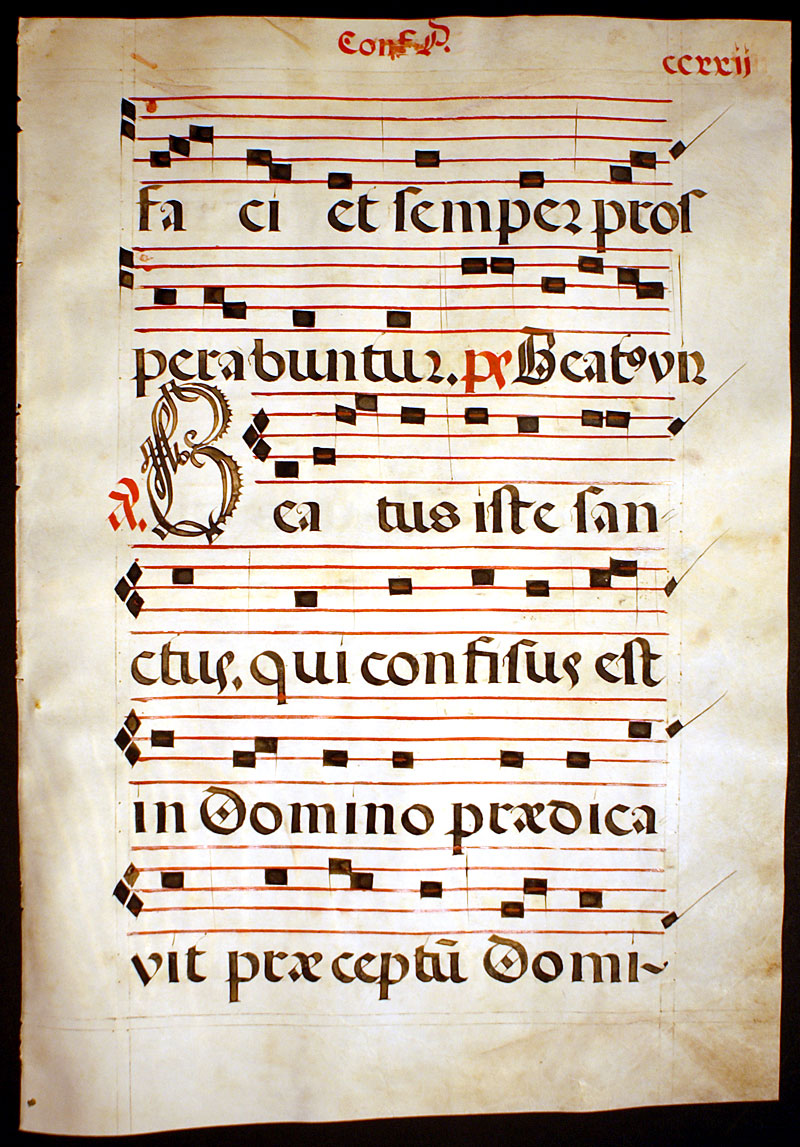 Conf. P.
ccxxii
fa ci et semper pros
perabuntur. ps Beatꝰ vir
A. Bea tus iste san-
ctus, qui confisus est
in Domino prædica
vit præceptũ Domi-